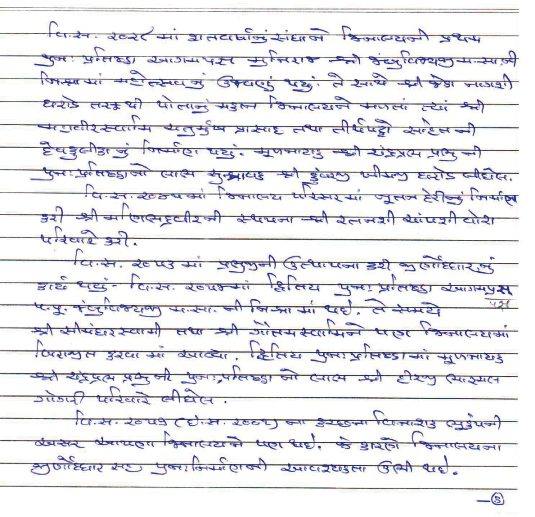 વિ.સ. ૨૦૨૮ માં શતવર્ષીનું સંઘાને જિનાલયની પ્રથમ
પુનઃ પ્રતિષ્ઠા આગમપ્રજ્ઞ મુનિરાજ શ્રી જંબુવિજયજી મ.સા.ની
નિશ્રામાં મહોત્સવનું ઉજવણું થયું. તે સાથે શ્રી નાગશી
ધરોડ તરફથી પોતાનું મકાન જિનાલયને મળતાં ત્યાં શ્રી
મહાવીરસ્વામિ ચતુર્મુખ પ્રાસાદ તથા તીર્થપટ્ટો સહિતની
દેવકુલીકાનું નિર્માણ થયું. મૂળનાયક શ્રી ચંદ્રપ્રભ પ્રભુની
પુનઃ પ્રતિષ્ઠાનો લાભ સુશ્રાવક શ્રી કુંવરજી ખીમજી ધરોડે લીધેલ.
વિ.સ. ૨૦૪૫માં જિનાલય પરિસરમાં નૂતન દેરીનું નિર્માણ
કરી શ્રી મણિભદ્રવીરની સ્થાપના શ્રી રતનશી ચાંપશી વોરા
પરિવારે કરી.
વિ.સ. ૨૦૫૩ માં પ્રભુજીની ઉત્થાપના કરી જીર્ણોધ્ધારનું
કાર્ય થયું. વિ.સ. ૨૦૫૪માં દ્વિતિય પુનઃ પ્રતિષ્ઠા આગમપ્રજ્ઞ
પ.પૂ. જંબુવિજયજી મ.સા. ની નિશ્રામાં થઈ. તે સમયે
શ્રી સીમંધરસ્વામી તથા શ્રી ગૌતમસ્વામિને પણ જિનાલયમાં
બિરાજીત કરવા માં આવ્યા. દ્વિતિય પુનઃ પ્રતિષ્ઠામાં મૂળનાયક
શ્રી ચંદ્રપ્રભ પ્રભુની પુનઃ પ્રતિષ્ઠા નો લાભ શ્રી હીરજી
ગોગરી પરિવારે લીધેલ.
વિ.સ. ૨૦૫૭ (ઈ.સ. ૨૦૦૧) ના કચ્છના વિનાશક ભુકંપની
અસર આપણા જિનાલયને પણ થઈ. જે કારણે જિનાલયના
જીર્ણોધ્ધાર સહ પુનઃ નિર્માણની આવશ્યકતા ઉભી થઈ.